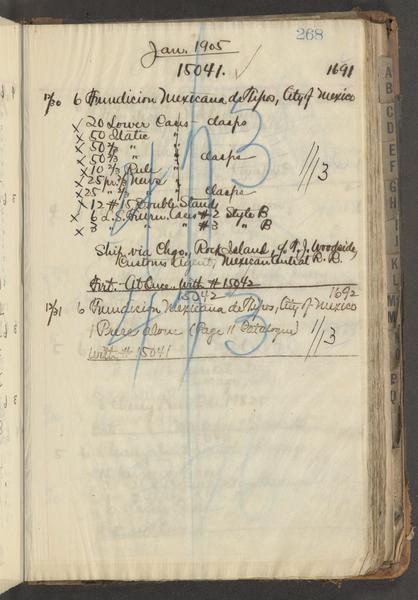 Jan. 1905 268
15041. 1691
12/30 6 Fundicion Mexicana de Tipos, City of Mexico
x 20 Lower Cases - clasps
x 50 Italic "
x 50 2/3 " "
x 50 2/3 " " clasps
x 10 2/3 Rule "
x 25 pr. 2/3 News "
x 25 " 2/3 " " clasps
x 12 # 15 Double Stands
x 6 L.S. Cases # 2 Style B
x 3 " " " # 3 " B
1/13
Ship via Chgo., Rock Island, % F. J. Woodside,
Customs Agent, Mexican Central R. R.
Frt. - At Once. With # 15042
15042 1692
12/31 6 Fundicion Mexicana de Tipos, City of Mexico
1 (Page 11 Catalogue) 1/13
with # 15041
A
B
C
D
E
F
G
H
I
J
K
L
M